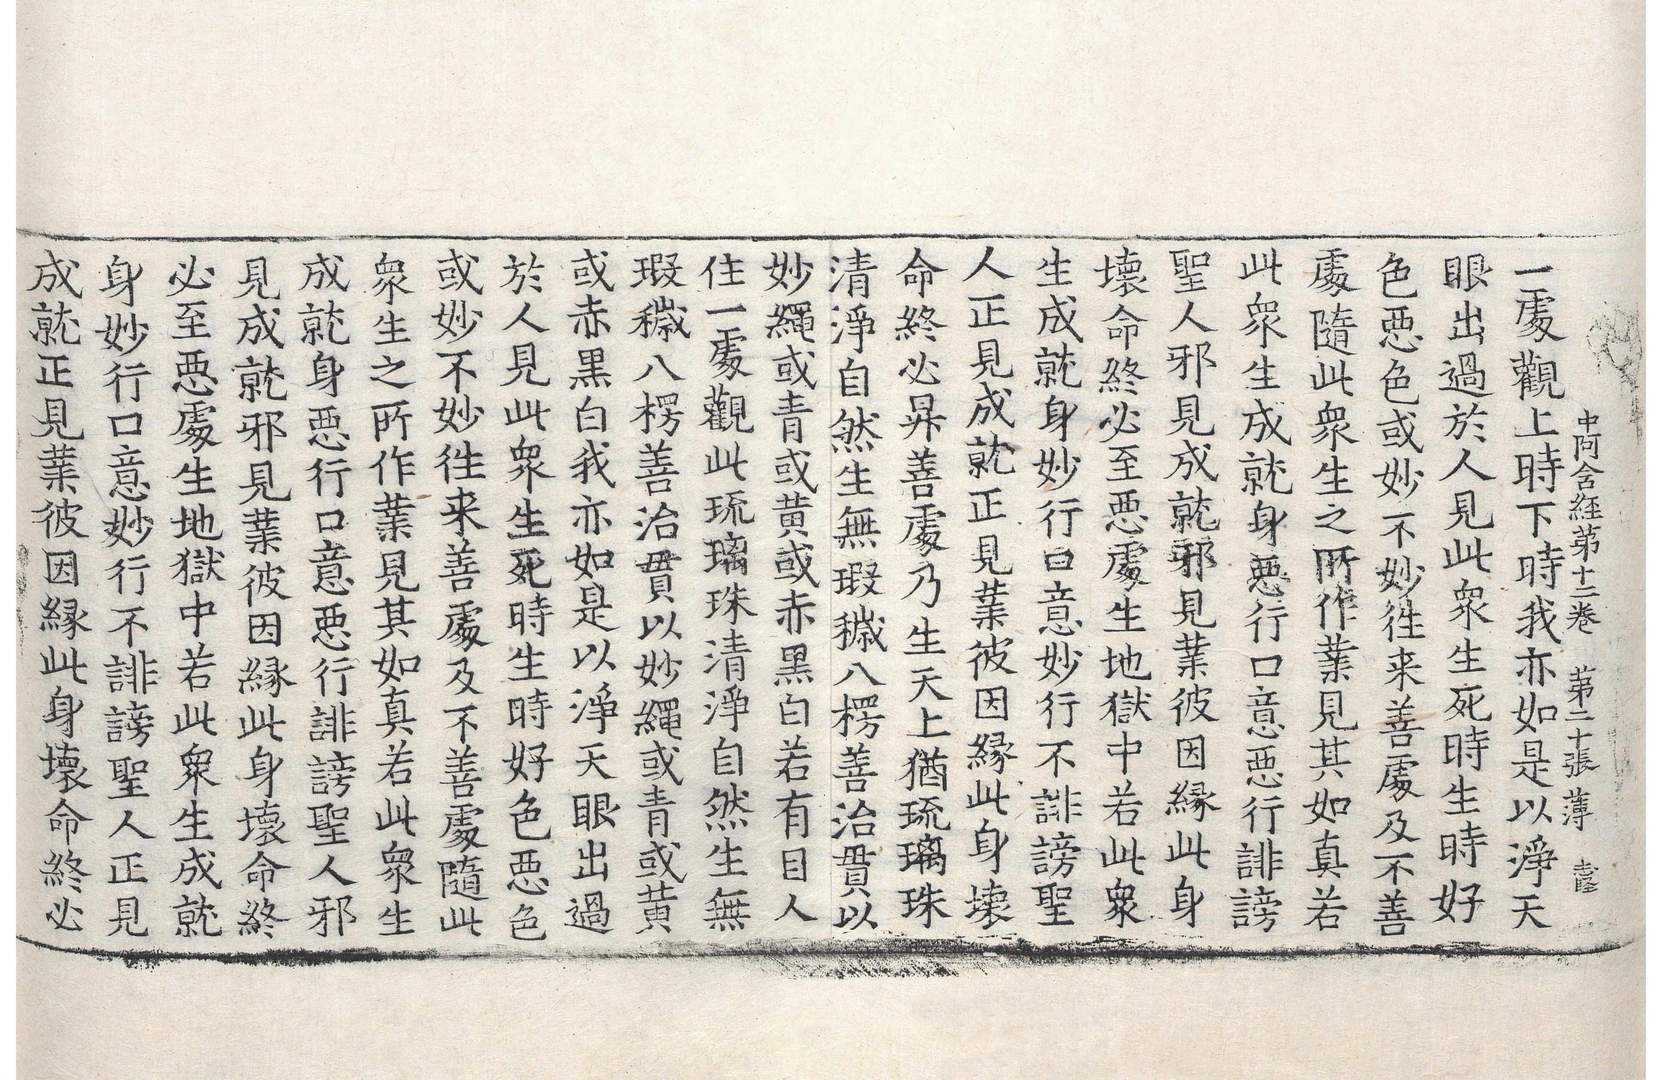 中阿含経第十二卷 第二十張 薄
一處觀上時下時我亦如是以淨天
眼出過於人見此衆生死時生時好
色悪色或妙不妙徃来善處及不善
處隨此衆生之所作業見其如真若
此衆生成就身悪行口意悪行誹謗
聖人邪見成就邪見業彼因縁此身
壞命終必至悪處生地獄中若此衆
生成就身妙行曰意妙行不誹謗聖
人正見成就正見業彼因縁此身壊
命終必昇善處乃生天上猶琉璃珠
清淨自然生無瑕穢八楞善治貫以
妙繩或青或黄或赤黑白若有目人
住一處觀此琉璃珠清淨自然生無
瑕穢八楞善治貫以妙繩或青或黄
或赤黑白我亦如是以淨天眼出過
於人見此衆生死時生時好色悪色
或妙不妙徃来善處及不善處隨此
衆生之所作業見其如真若此衆生
成就身悪行口意悪行誹謗聖人邪
見成就邪見業彼因縁此身壞命終
必至悪處生地獄中若此衆生成就
身妙行口意妙行不誹謗聖人正見
成就正見業彼因縁此身壞命終必